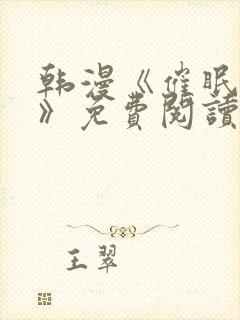 韩漫《催眠
》免費閱讀
王翠